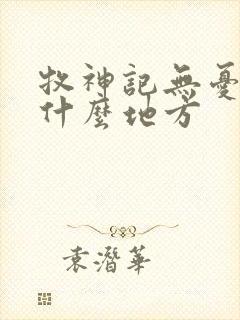 牧神記無憂
什麼地方
袁潛華